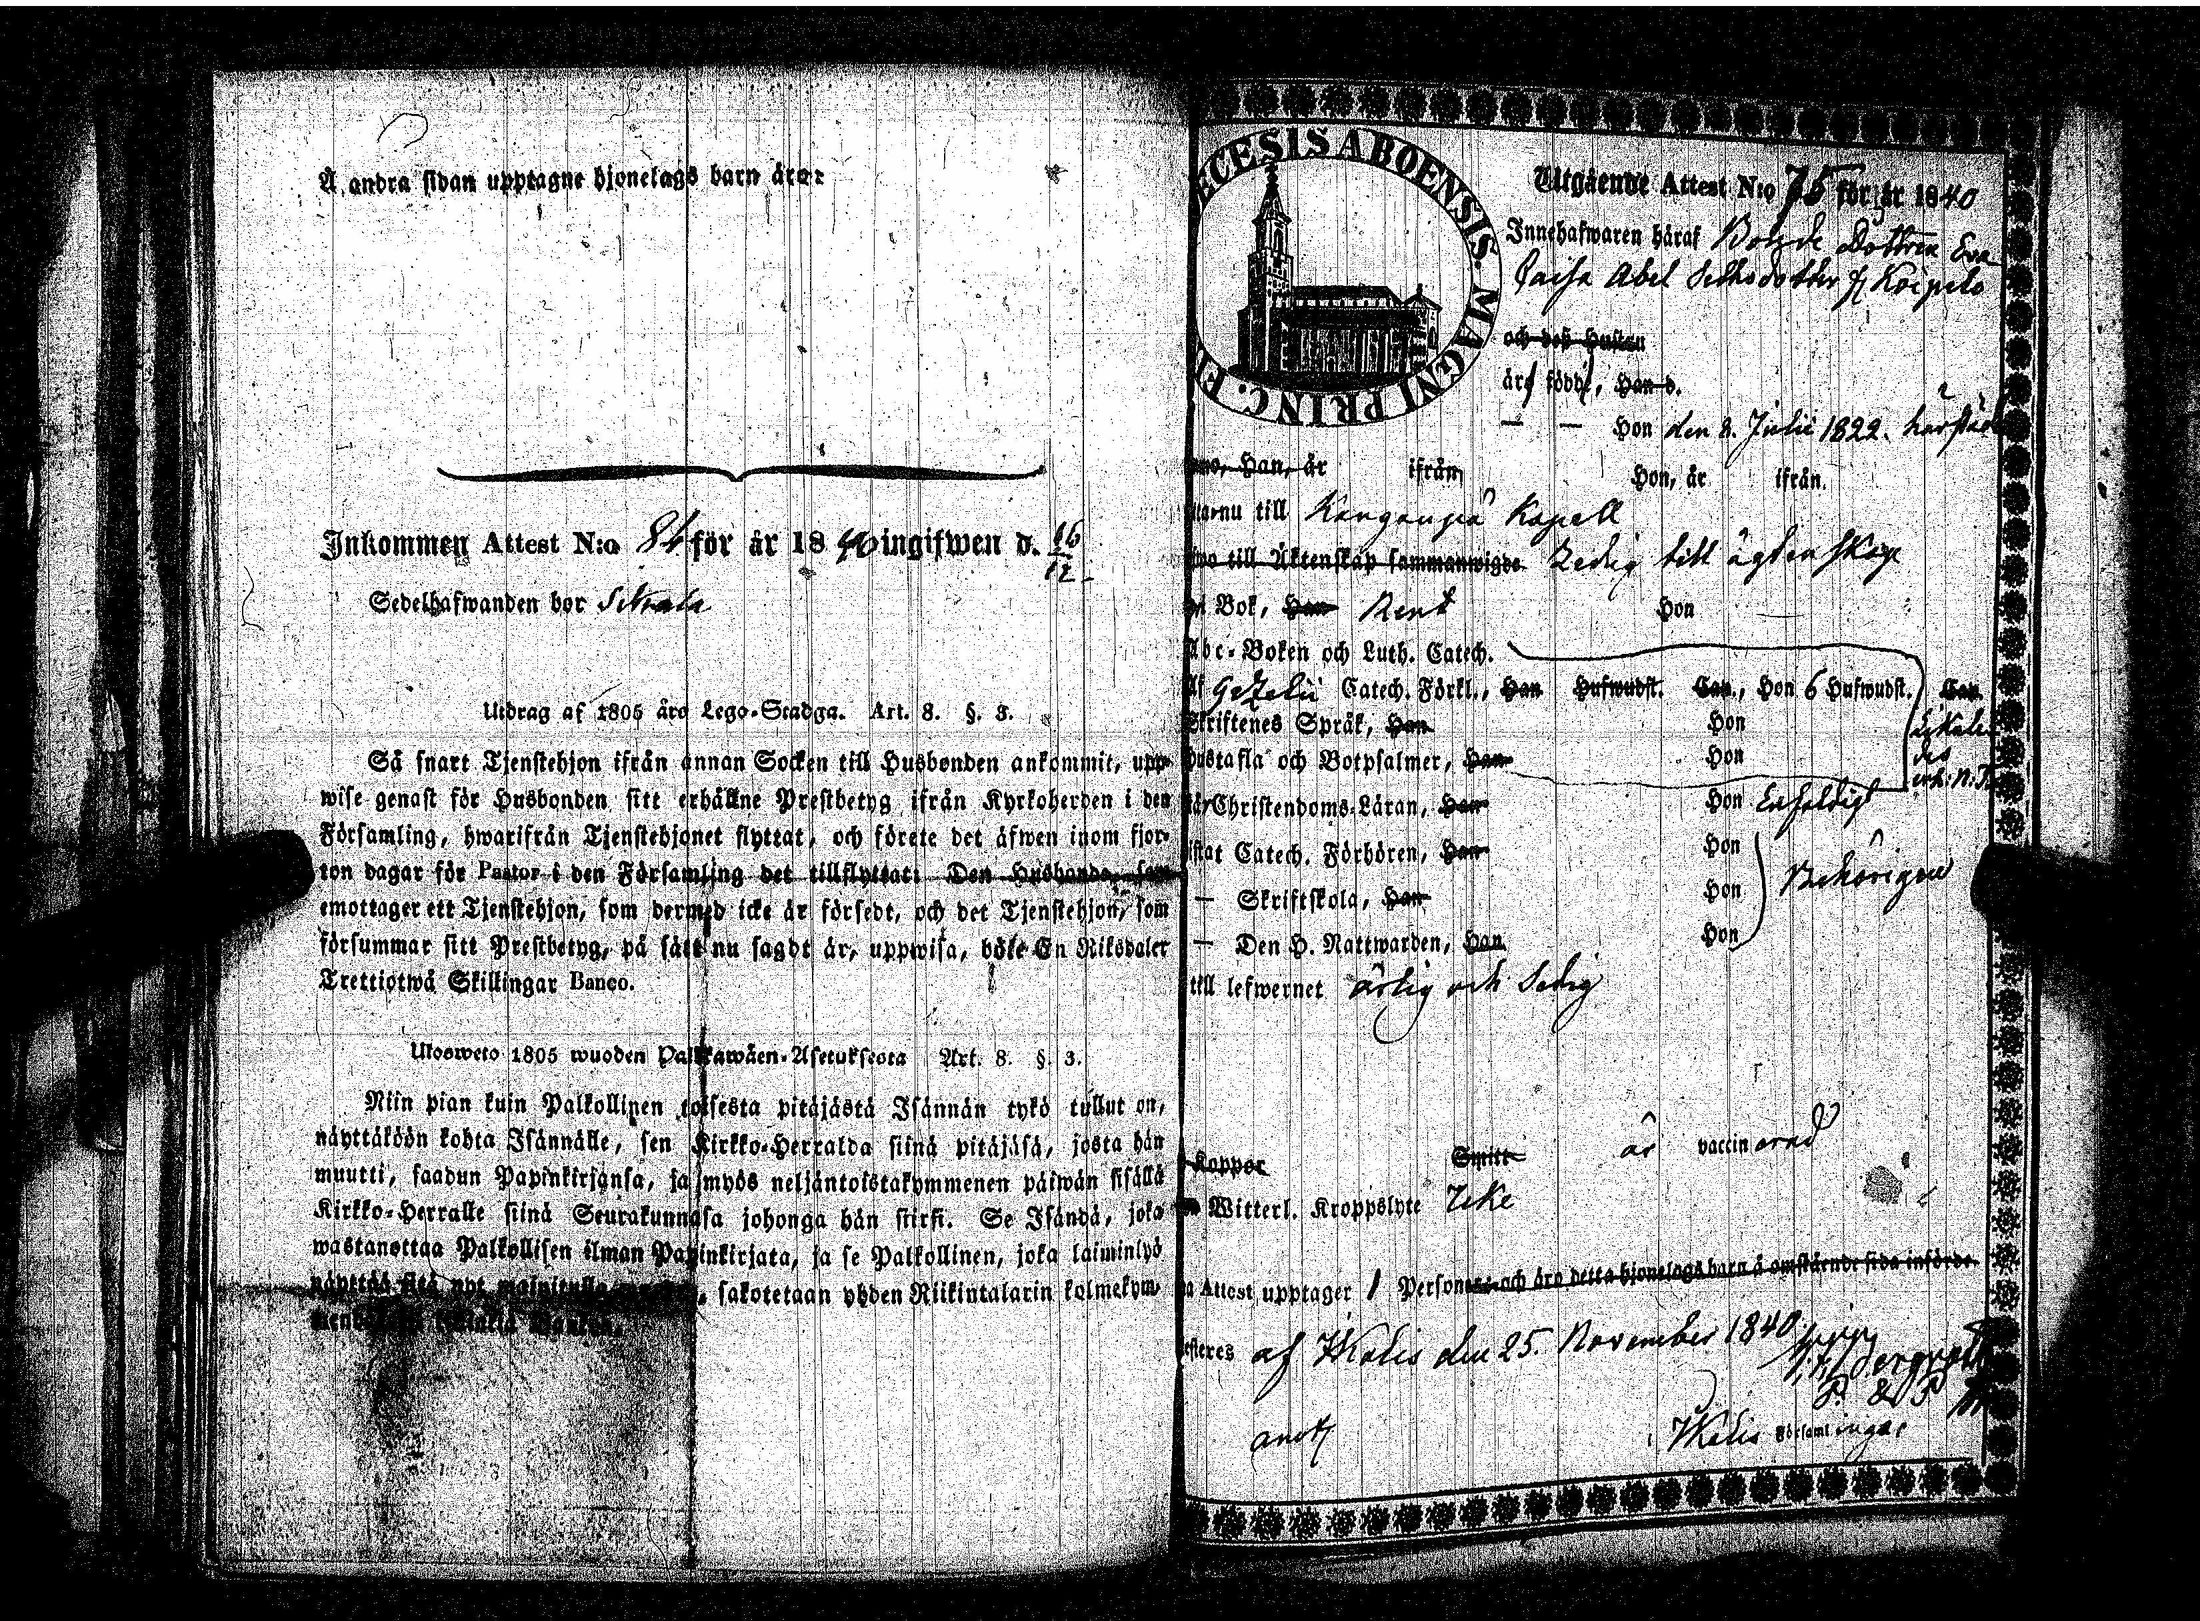 A andra sidan upptagne hjonelags barn äro:
Inkommen Attest N:o 84 för år 1840 ingifwen d. 16/12
Sedelhafwanden bor
Utdrag af 1805 års Lego-Stadga. Art. 8. §. 3.
Så snart Tjenstehjon ifrån annan Socken till Husbonden ankommit, upp-
wise genast för Husbonden sitt erhållne Prestbetyg ifrån Kyrkoherden i den
Församling, hwarifrån Tjenstehjonet flyttat, och förete det äfwen inom fjor-
ton dagar för Pastor i den Församling det tillflyttat: Den Husbonde, som
emottager ett Tjenstehjon, som dermed icke är försedt, och det Tjenstehjon, som
försummar sitt Prestbetyg, på sätt nu sagdt är, uppwisa, böte En Riksdaler
Trettiotwå Skillingar Banco.
Ulosweto 1805 wuoden Palkkawäen-Asetuksesta Art. 8. §. 3.
Niin pian kuin Palkollinen toisesta pitäjästä Isännän tykö tullut on,
näyttäköön kohta Isännälle, sen Kirkko-Herralda siinä pitäjäsä, josta hän
muutti, saadun Papinkirjansa, ja myös neljäntoistakymmenen päiwän sisällä
Kirkko-Herralle siinä Seurakunnasa johonga hän siirsi. Se Isändä, joka
wastanottaa Palkollisen ilman Papinkirjata, ja se Palkollinen, joka laiminlyö
näyttää sitä nyt mainitulla, sakotetaan yhden Riikintalarin kolmekym-
ECESIS ABOENSIS. MAGNI PRINC. FI
Utgående Attest N:o 75 för år 1840
Innehafwaren häraf Bonde Dottren Eva
Caisa Abel Sethsdotter fr Koipelo
och deß Hustru
äro födde, Han d.
— — Hon den 8. Julii 1822. härstäd
Han, år ifrån Hon, år ifrån.
nu till Kangaspä Kapell
till Äktenskap sammanwigde Ledig till ägtenskap
Bok, Han Rent Hon
Abc-Boken och Luth. Catech.
Af Gezelii Catech. Förkl., Han Hufwudst. Cap., Hon 6 Hufwudst. Cap.
Skriftenes Språk, Han Hon
Hustafla och Botpsalmer, Han Hon
Christendoms-Läran, Han Hon Enfaldigt
Catech. Förhören, Han Hon
— Skriftskola, Han Hon Behörigen
— Den H. Nattwarden, Han Hon
till lefwernet ärlig och Sedig
Koppor Smitt är vaccinerad
Witterl. Kroppslyte Icke
Attest upptager 1 Personer och äro detta hjonelags barn å omstående sida införde.
af Ikalis den 25. November 1840
Ikalis Församlingar